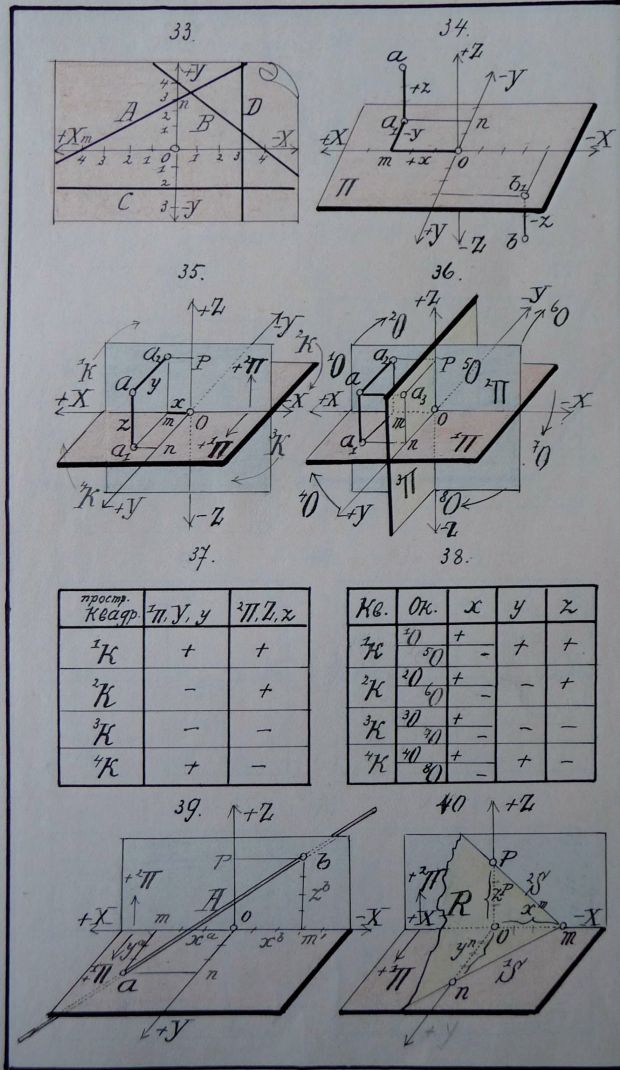 33.
+y
4
3 n
2
1
A
B
D
+X m
4 3 2 1 0 1 2 3 4
-X
1
2
3
C
-y
34.
+Z
-y
a
+z
a₁
-y
n
+X
-X
m
+x
O
П
b₁
-z
b
+y
-Z
35.
+Z
-y
¹K
²K
a₂
P
a
y
+²П
+X
-X
z
x
m
O
a₁
n
+¹П
³K
⁴K
+y
-Z
36.
+Z
-y
²O
⁶O
¹O
a₂
P
⁵O
²П
a
a₃
+X
-X
m
O
a₁
n
¹П
⁷O
³П
⁴O
+y
⁸O
-Z
37.
простр. квадр. ¹П, У, у ²П, Z, z
¹K + +
²K - +
³K - -
⁴K + -
38.
Кв. Ок. x y z
¹K ¹O + + +
⁵O -
²K ²O + - +
⁶O -
³K ³O + - -
⁷O -
⁴K ⁴O + + -
⁸O -
39.
+Z
P
b
+²П
A
zᵇ
+X
m
O
-X
xᵃ
xᵇ
m'
yᵃ
+¹П
a
n
+y
40
+Z
P
+²П
²S
R
zᵖ
xᵐ
+X
-X
O
m
yⁿ
+¹П
¹S
n
+y